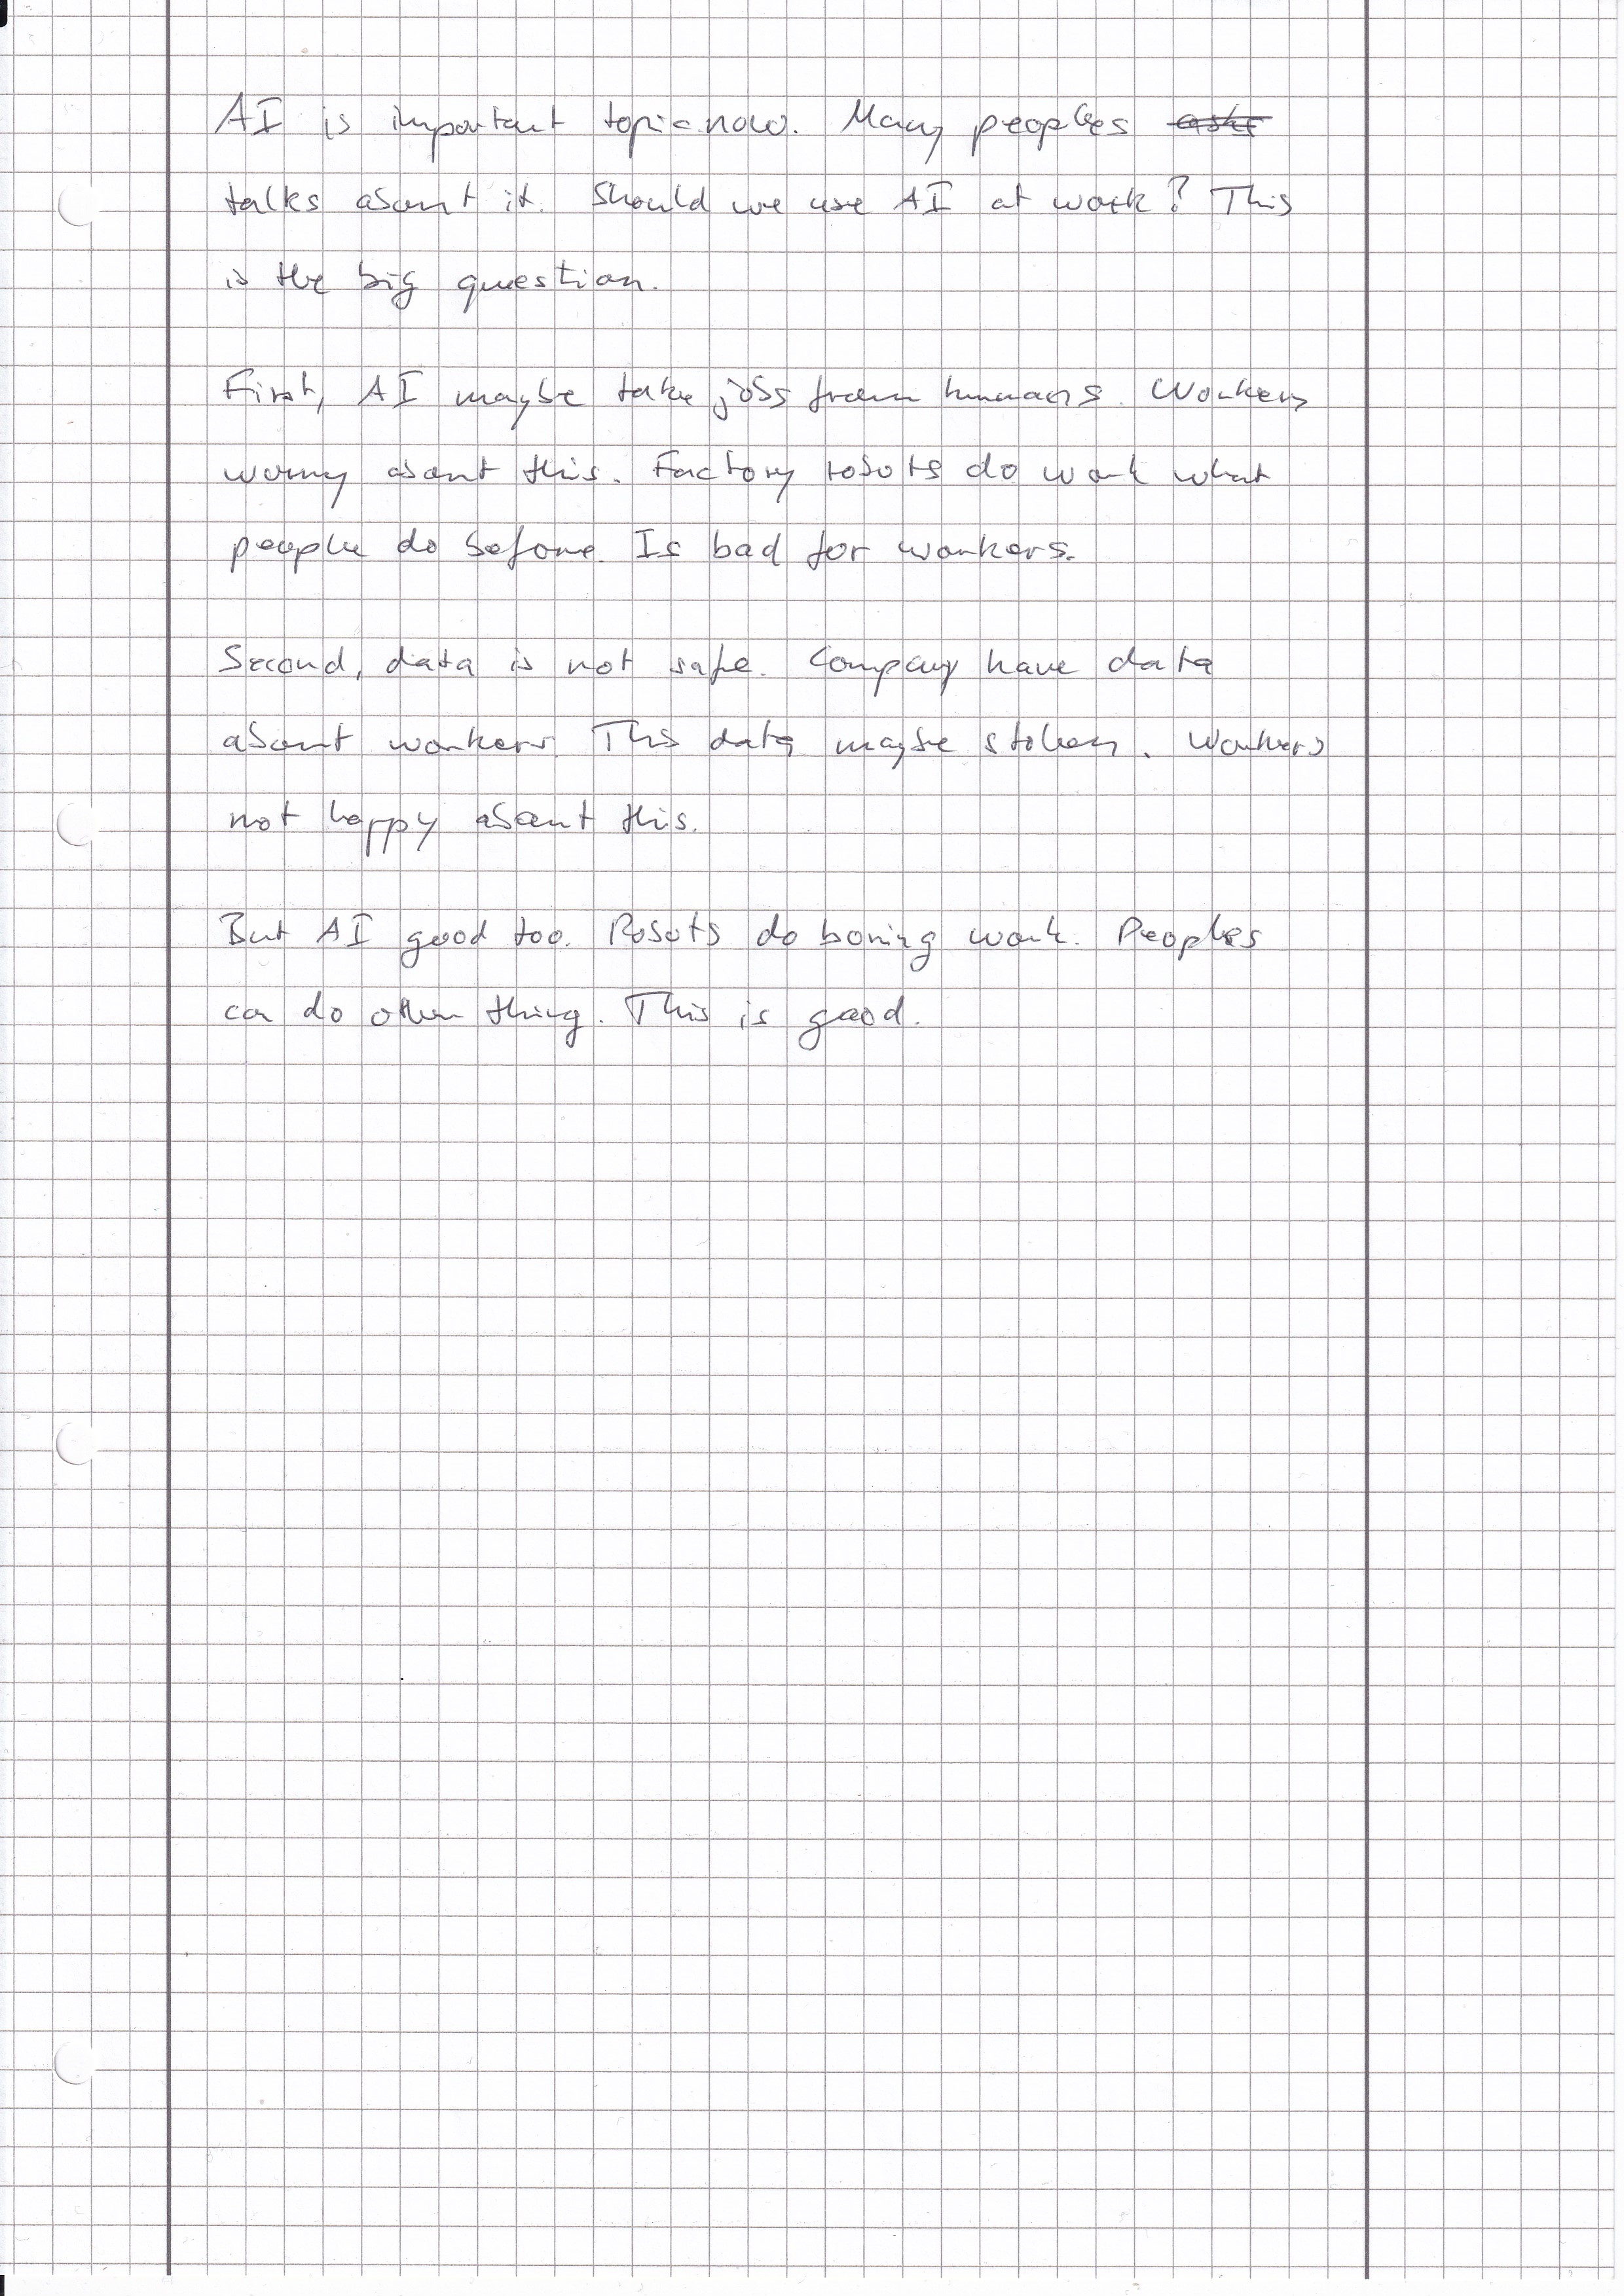 AI is important topic now. Many peoples
talks about it. Should we use AI at work? This
is the big question.
First, AI maybe take jobs from humans. Workers
worry about this. Factory robots do work what
people do before. Is bad for workers.
Second, data is not safe. Company have data
about workers. This data maybe stolen. Workers
not happy about this.
But AI good too. Robots do boring work. Peoples
can do other thing. This is good.